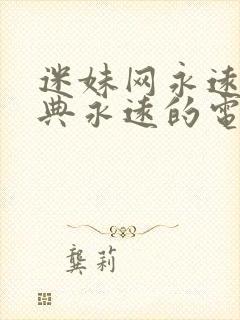 迷妹网永远
典永远的电
龚莉